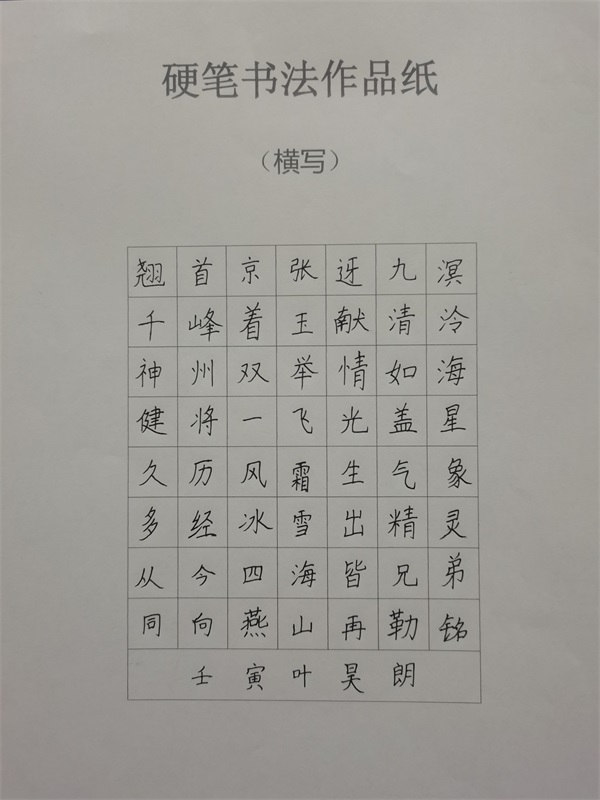 硬笔书法作品纸
（横写）
翘首京张迓九溟
千峰着玉献清泠
神州双举情如海
健将一飞光盖星
久历风霜生气象
多经冰雪出精灵
从今四海皆兄弟
同向燕山再勒铭
壬寅叶昊朗